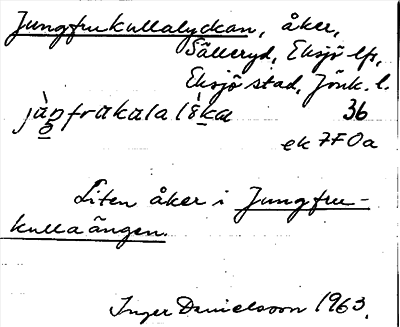 Jungfrukullalyckan, åker,
Sälleryd, Eksjö lfs,
Eksjö stad, Jönk. l.
36
ek 7F0a
Liten åker i Jungfru-
kullaängen.
Inger Danielsson 1963.